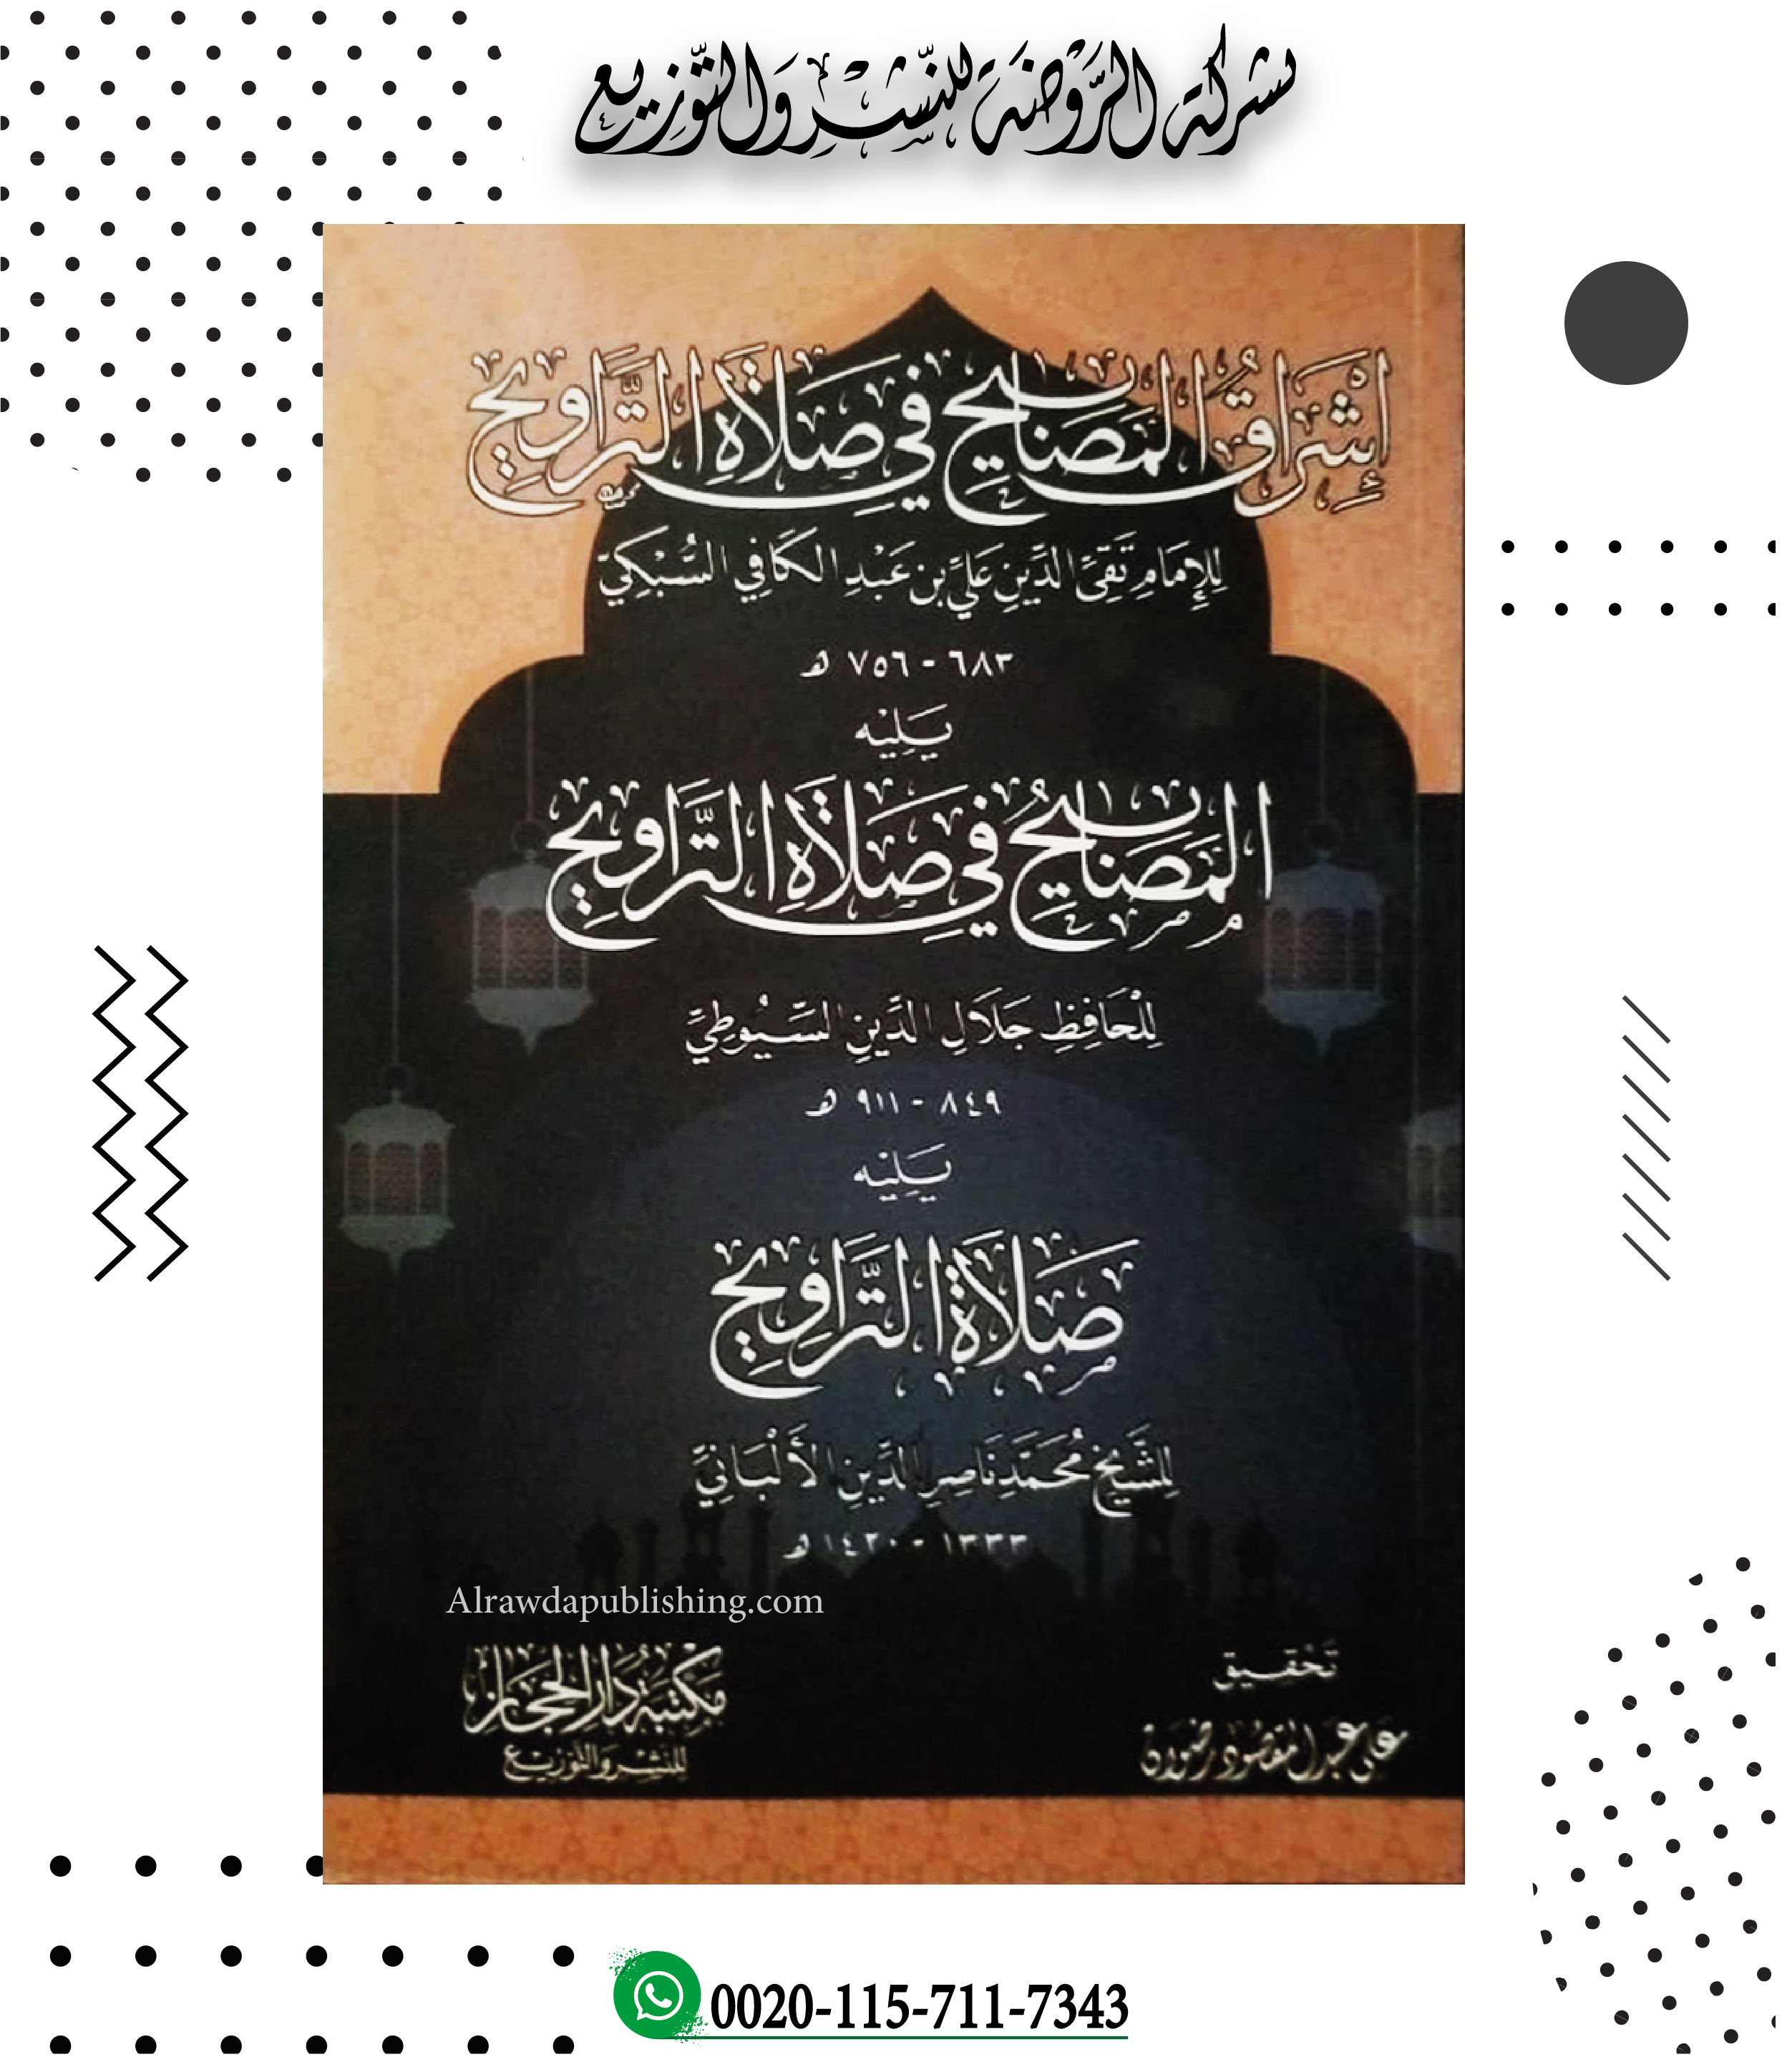 شركة الرَّوْضَة للنَّشْرِ وَالتَّوْزِيع
إِشْرَاقُ المَصَابِيحِ فِي صَلَاةِ التَّرَاوِيحِ
لِلإِمَامِ تَقِيِّ الدِّينِ عَلِيِّ بن عَبْدِ الكَافِي السُّبْكِيِّ
٦٨٣ - ٧٥٦ هـ
يَلِيْه
المَصَابِيحُ فِي صَلَاةِ التَّرَاوِيحِ
لِلْحَافِظِ جَلَالِ الدِّينِ السُّيُوطِيِّ
٨٤٩ - ٩١١ هـ
يَلِيْه
صَلَاةُ التَّرَاوِيحِ
لِلشَّيْخِ مُحَمَّد نَاصِرِ الدِّينِ الأَلْبَانِيِّ
١٣٣٣ - ١٤٢٠ هـ
Alrawdapublishing.com
تَحْقِيق
علي عبد المقصود رضوان
مَكتَبَة دَار الحِجَاز
للنَشْر وَالتَّوزيْع
0020-115-711-7343